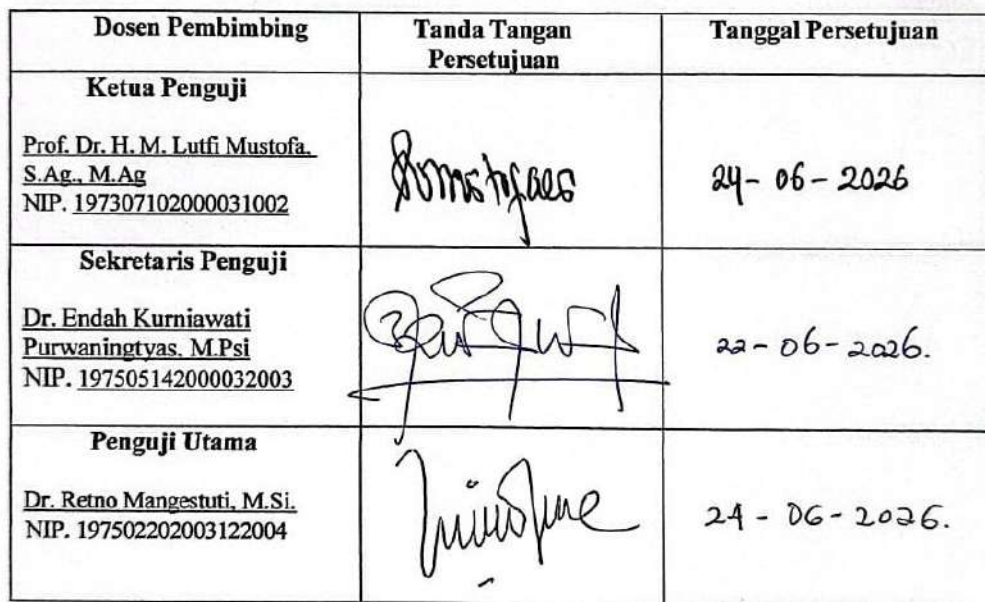 Dosen Pembimbing
Tanda Tangan
Persetujuan
Tanggal Persetujuan
Ketua Penguji
Prof. Dr. H. M. Lutfi Mustofa,
S.Ag., M.Ag
NIP. 197307102000031002
24-06-2026
Sekretaris Penguji
Dr. Endah Kurniawati
Purwaningtyas, M.Psi
NIP. 197505142000032003
22-06-2026.
Penguji Utama
Dr. Retno Mangestuti, M.Si.
NIP. 197502202003122004
24-06-2026.